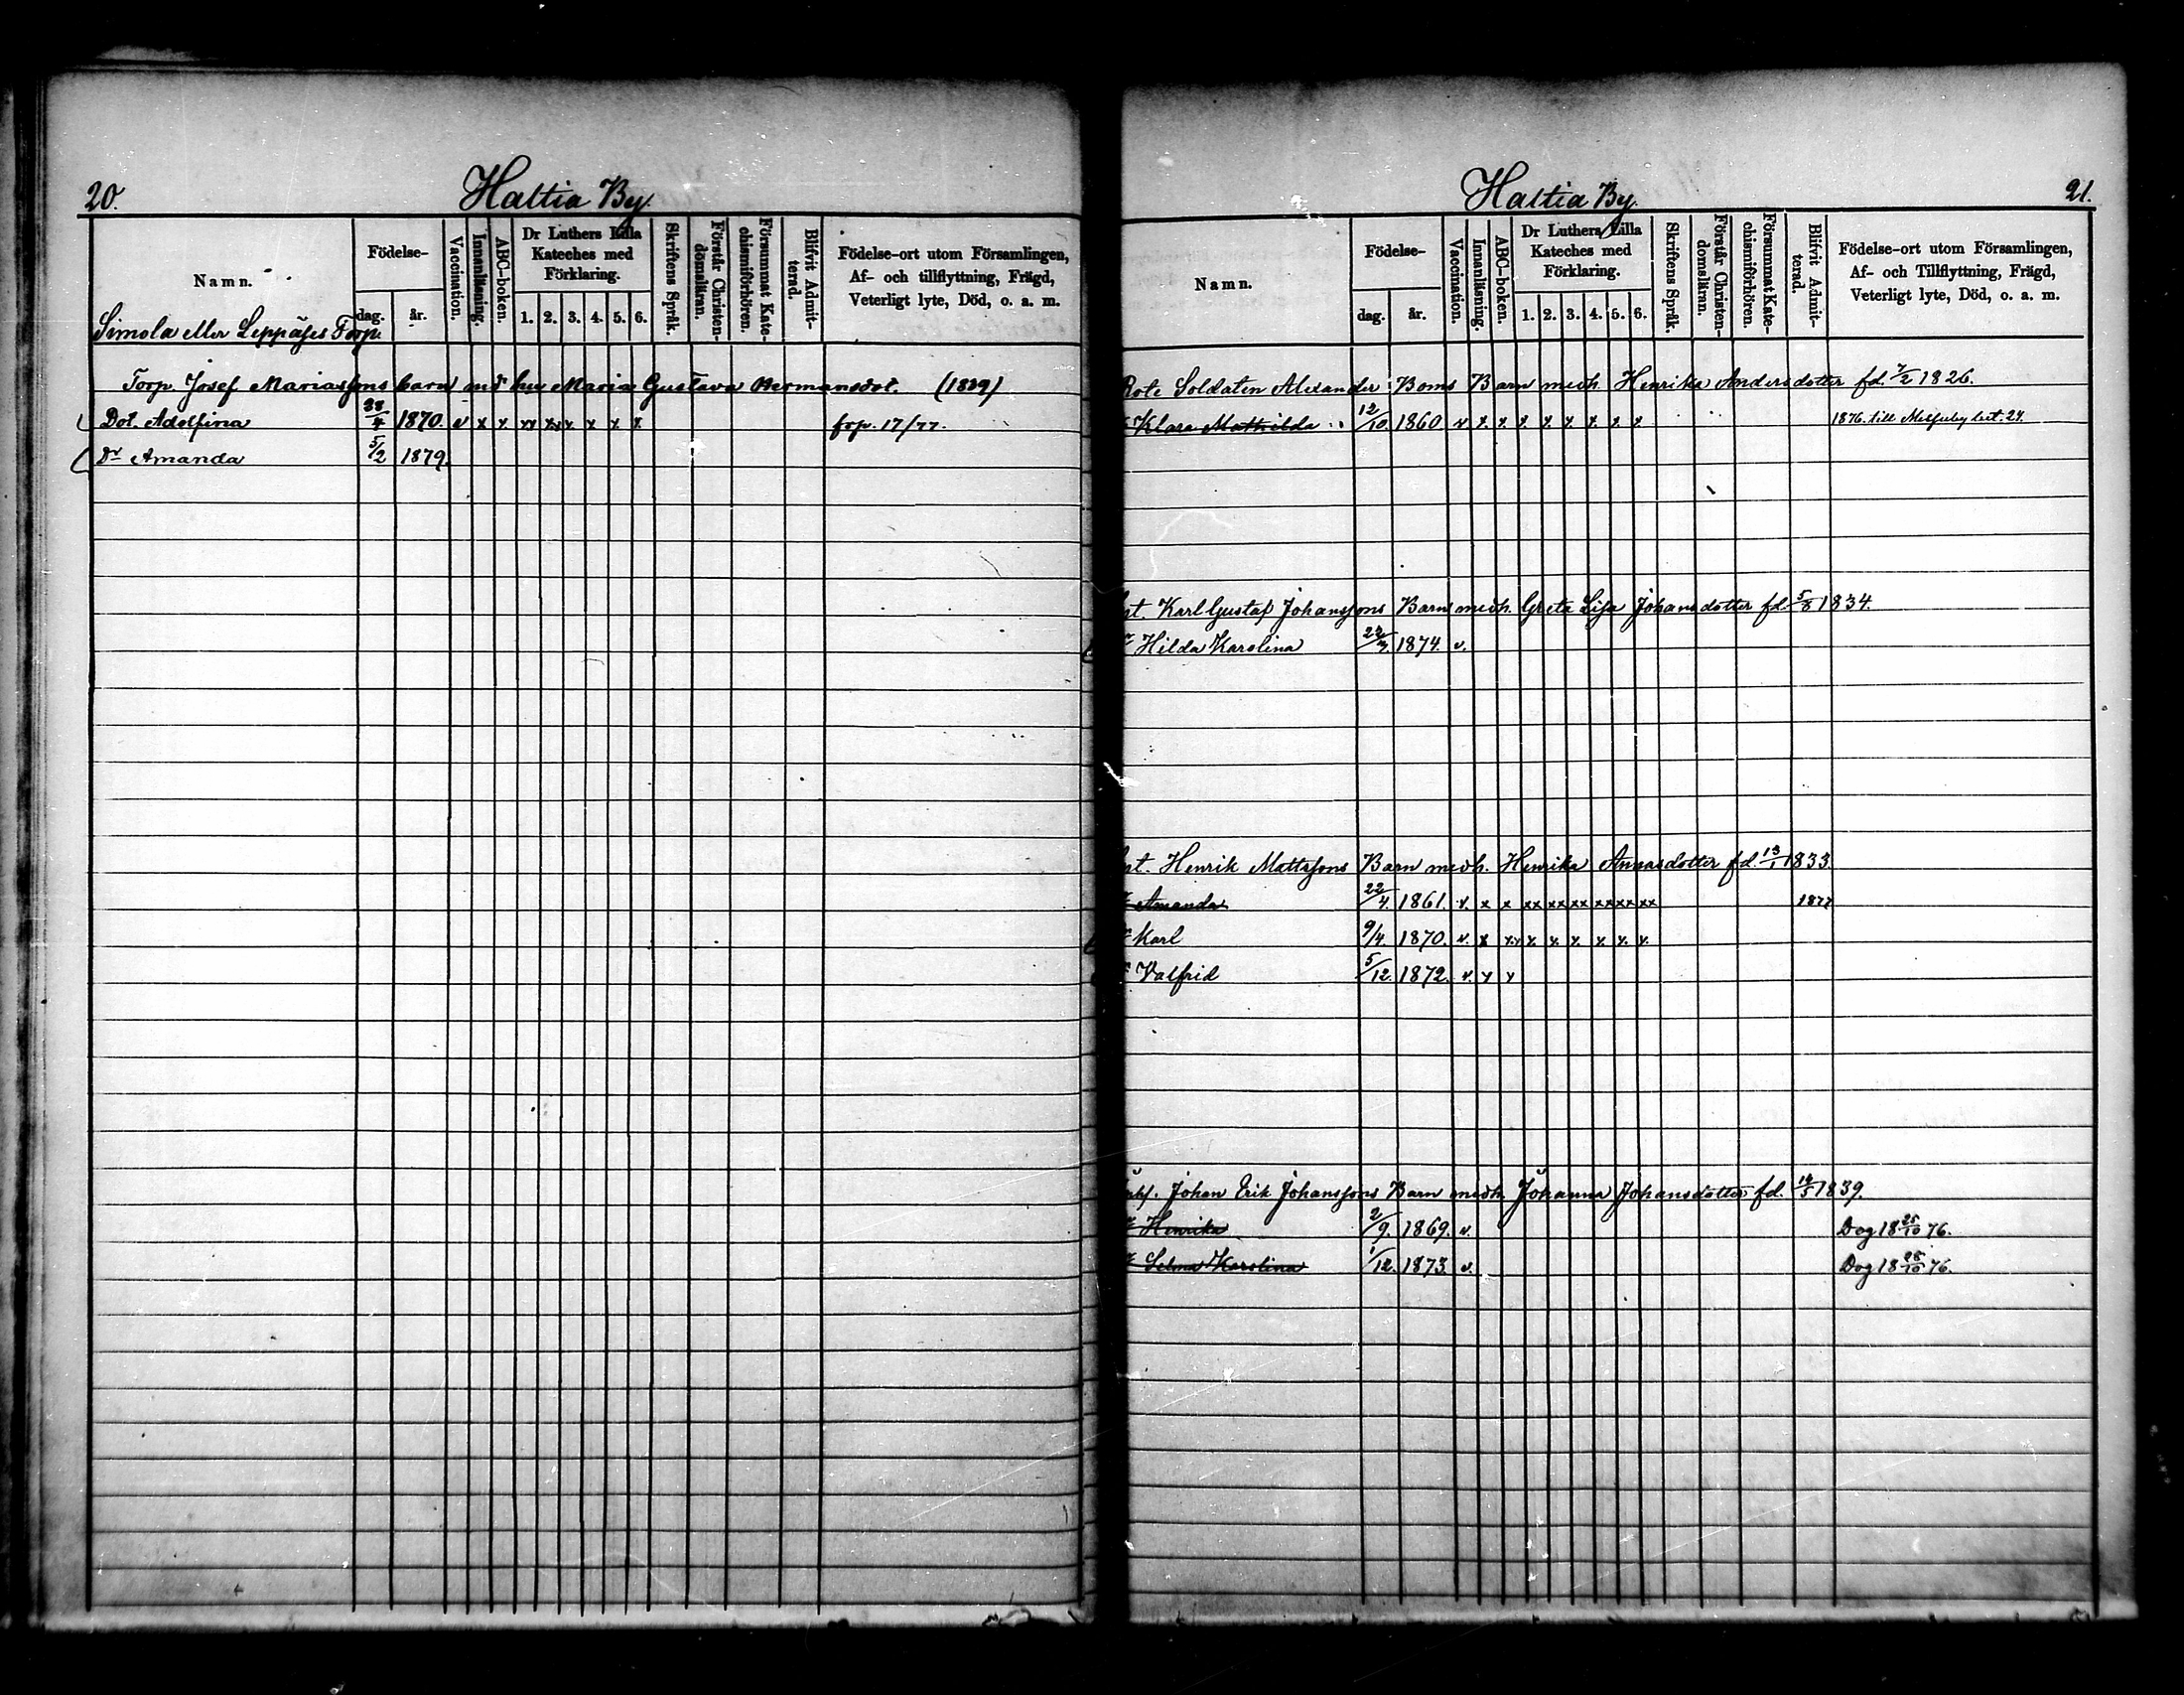 20.
Haltia By.
Namn.
Födelse-
dag.
år.
Vaccination.
Innanläsning.
ABC-boken.
Dr Luthers Lilla
Kateches med
Förklaring.
1. 2. 3. 4. 5. 6.
Skriftens Språk.
Förstår Christen-
domsläran.
Försummat Kate-
chismiförhören.
Blifvit Admit-
terad.
Födelse-ort utom Församlingen,
Af- och tillflyttning, Frägd,
Veterligt lyte, Död, o. a. m.
Simola eller Leppäjes Torp.
Torp. Josef Mariassons barn med hu Maria Gustava Hermansdot. (1829)
Dot. Adolfina 28/4 1870. v x x xx xx x x x x frp. 17/77.
Dr Amanda 5/2 1879.
Haltia By.
21.
Namn.
Födelse-
dag.
år.
Vaccination.
Innanläsning.
ABC-boken.
Dr Luthers Lilla
Kateches med
Förklaring.
1. 2. 3. 4. 5. 6.
Skriftens Språk.
Förstår Christen-
domsläran.
Försummat Kate-
chismiförhören.
Blifvit Admit-
terad.
Födelse-ort utom Församlingen,
Af- och Tillflyttning, Frägd,
Veterligt lyte, Död, o. a. m.
Rote Soldaten Alexander Boms Barn medh. Henrika Andersdotter fd. 7/2 1826.
Klara Mathilda 12/10. 1860 v x x x x x x x x 1876. till
Karl Gustaf Johanssons Barn medh. Greta Lisa Johansdotter fd. 5/8 1834.
Hilda Karolina 1874. v.
Henrik Mattssons Barn medh. Henrika Annasdotter fd. 13/1 1833.
Amanda 22/4. 1861. v. x x xx xx xx xx xx xx 1877
Karl 9/4. 1870. v. x xx x x x x x x.
Valfrid 5/12. 1872. v. x x
Johan Erik Johanssons Barn medh. Johanna Johansdotter fd. 1839.
Henrika 2/9. 1869. v. Dog 18 25/10 76.
Selma Karolina 1/12. 1873. v. Dog 18 28/10 76.